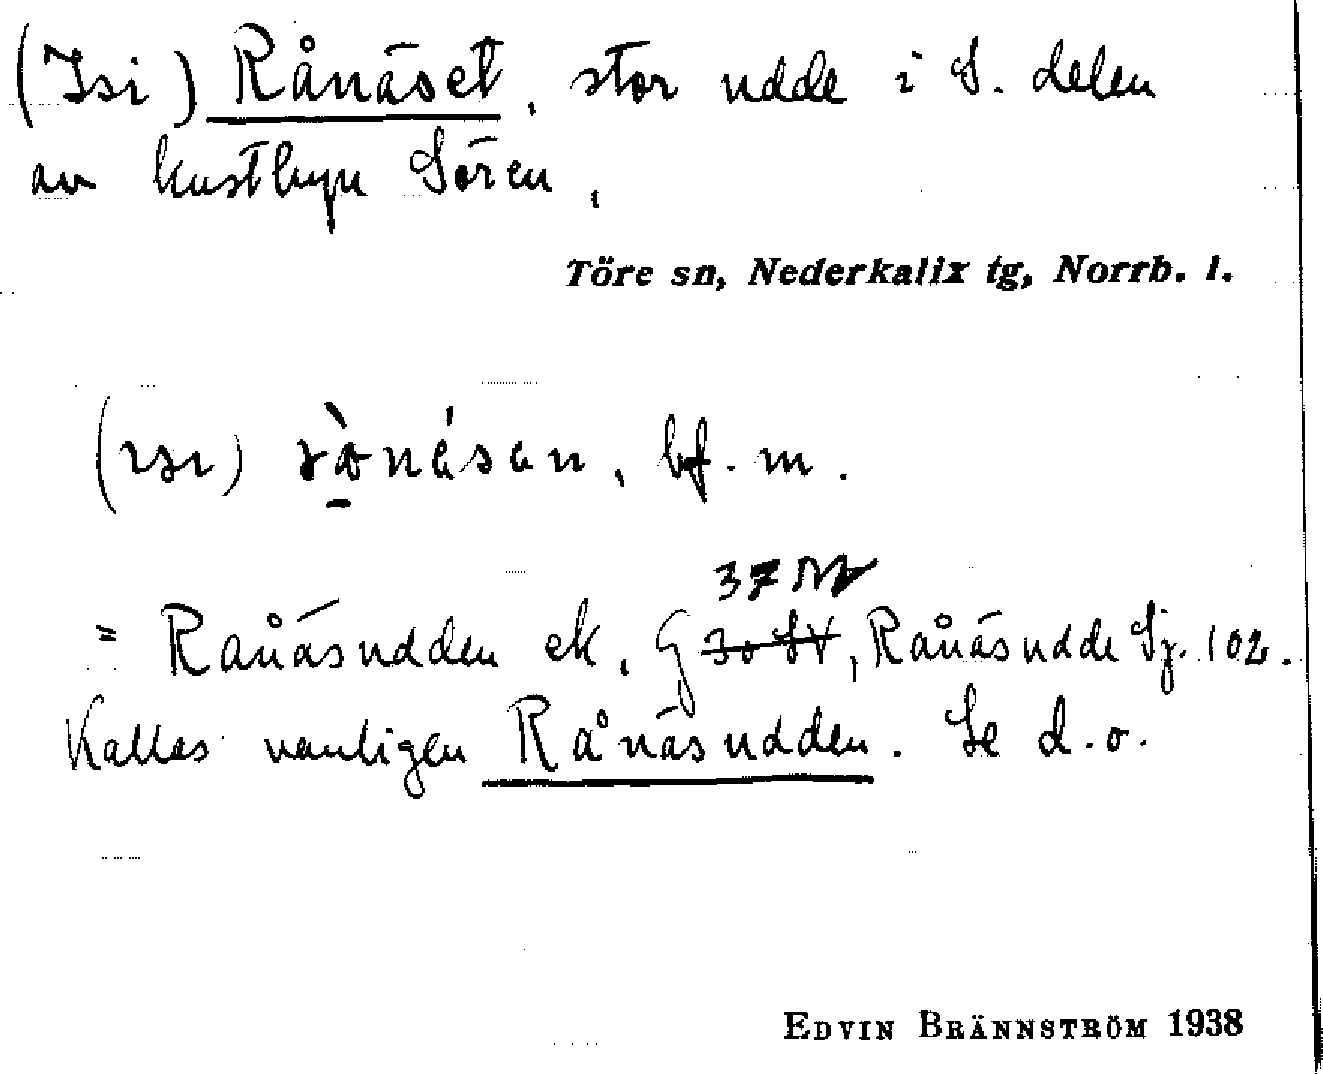 (Isi) Rånäset, stor udde i S. delen
av kustbyn Sören,
Töre sn, Nederkalix tg, Norrb. l.
(ɩsɩ) rò̱nésan, bf. m.
" Rånäsudden ek. G 30 SV, Rånäsudde Sj. 102.
Kallas vanligen Rånäsudden. Se d.o.
EDVIN BRÄNNSTRÖM 1938